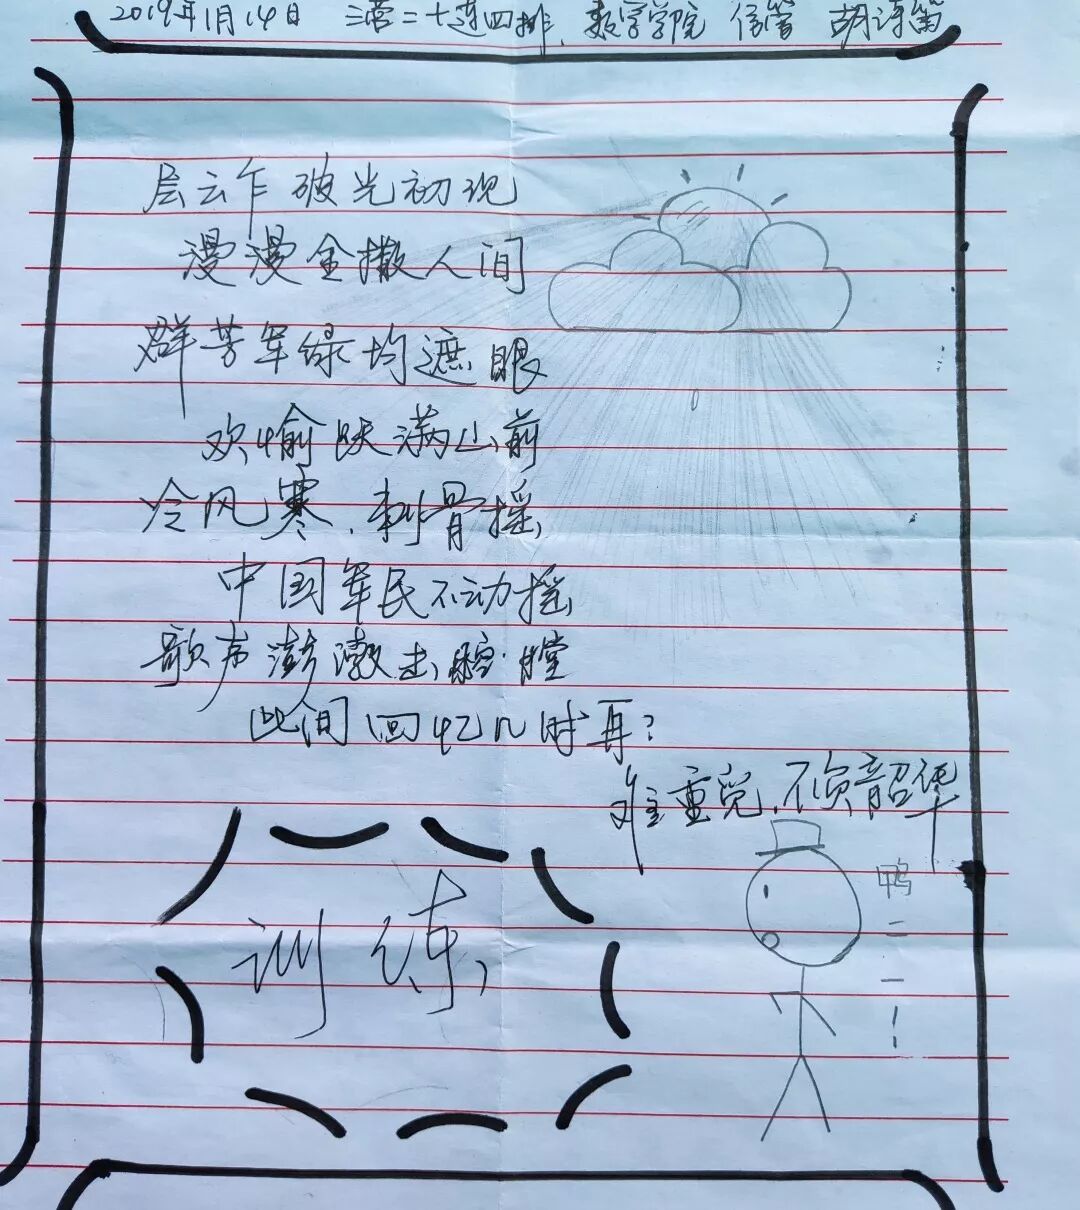 2019年1月14日 三营二十连四排, 数学学院 信管 胡诗笛
层云乍破光初现
漫漫金撒人间
群芳军绿均遮眼
欢愉跃满山前
冷风寒,刺骨摇
中国军民不动摇
歌声澎澈出胸膛
此间回忆几时再?
难重觅,不负韶华
训练
鸭二一!